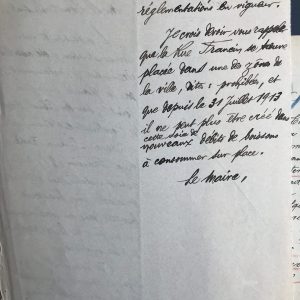 réglementations en vigueur.
Je crois devoir vous rappeler
que la Rue Francin se trouve
placée dans une des zones de
la ville, dites : prohibées, et
que depuis le 31 Juillet 1913
il ne peut plus être créé dans
cette voie de
nouveaux débits de boissons
à consommer sur place.
Le Maire,